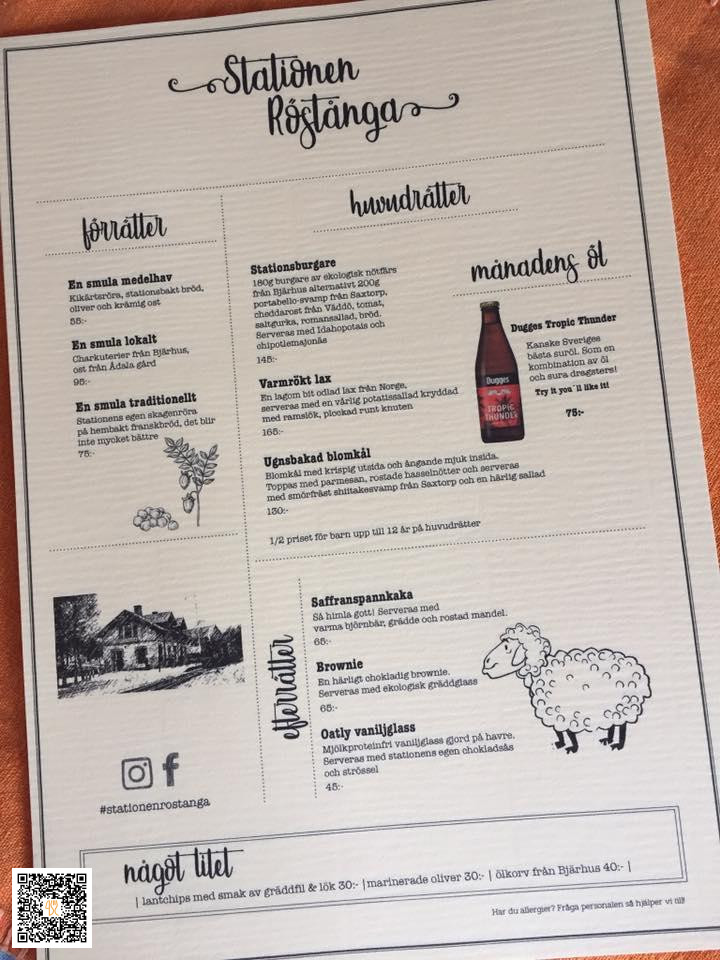 Stationen
Röstånga
förrätter
En smula medelhav
Kikärtsröra, stationsbakt bröd,
oliver och krämig ost
55:-
En smula lokalt
Charkuterier från Bjärhus,
ost från Ådala gård
95:-
En smula traditionellt
Stationens egen skagenröra
på hembakt franskbröd, det blir
inte mycket bättre
75:-
huvudrätter
Stationsburgare
180g burgare av ekologisk nötfärs
från Bjärhus alternativt 200g
portabello-svamp från Saxtorp,
cheddarost från Väddö, tomat,
saltgurka, romansallad, bröd.
Serveras med Idahopotais och
chipotlemajonäs
145:-
Varmrökt lax
En lagom bit odlad lax från Norge,
serveras med en vårlig potatissallad kryddad
med ramslök, plockad runt knuten
165:-
Ugnsbakad blomkål
Blomkål med krispig utsida och ångande mjuk insida.
Toppas med parmesan, rostade hasselnötter och serveras
med smörfräst shiitakesvamp från Saxtorp och en härlig sallad
130:-
1/2 priset för barn upp till 12 år på huvudrätter
månadens öl
Dugges
TROPIC
THUNDER
Dugges Tropic Thunder
Kanske Sveriges
bästa suröl. Som en
kombination av öl
och sura dragsters!
Try it you´ll like it!
75:-
efterrätter
Saffranspannkaka
Så himla gott! Serveras med
varma björnbär, grädde och rostad mandel.
65:-
Brownie
En härligt chokladig brownie.
Serveras med ekologisk gräddglass
65:-
Oatly vaniljglass
Mjölkproteinfri vaniljglass gjord på havre.
Serveras med stationens egen chokladsås
och strössel
45:-
#stationenrostanga
något litet
| lantchips med smak av gräddfil & lök 30:- |marinerade oliver 30:- | ölkorv från Bjärhus 40:- |
Har du allergier? Fråga personalen så hjälper vi till!